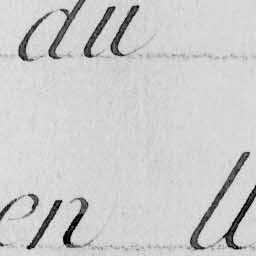 du
en